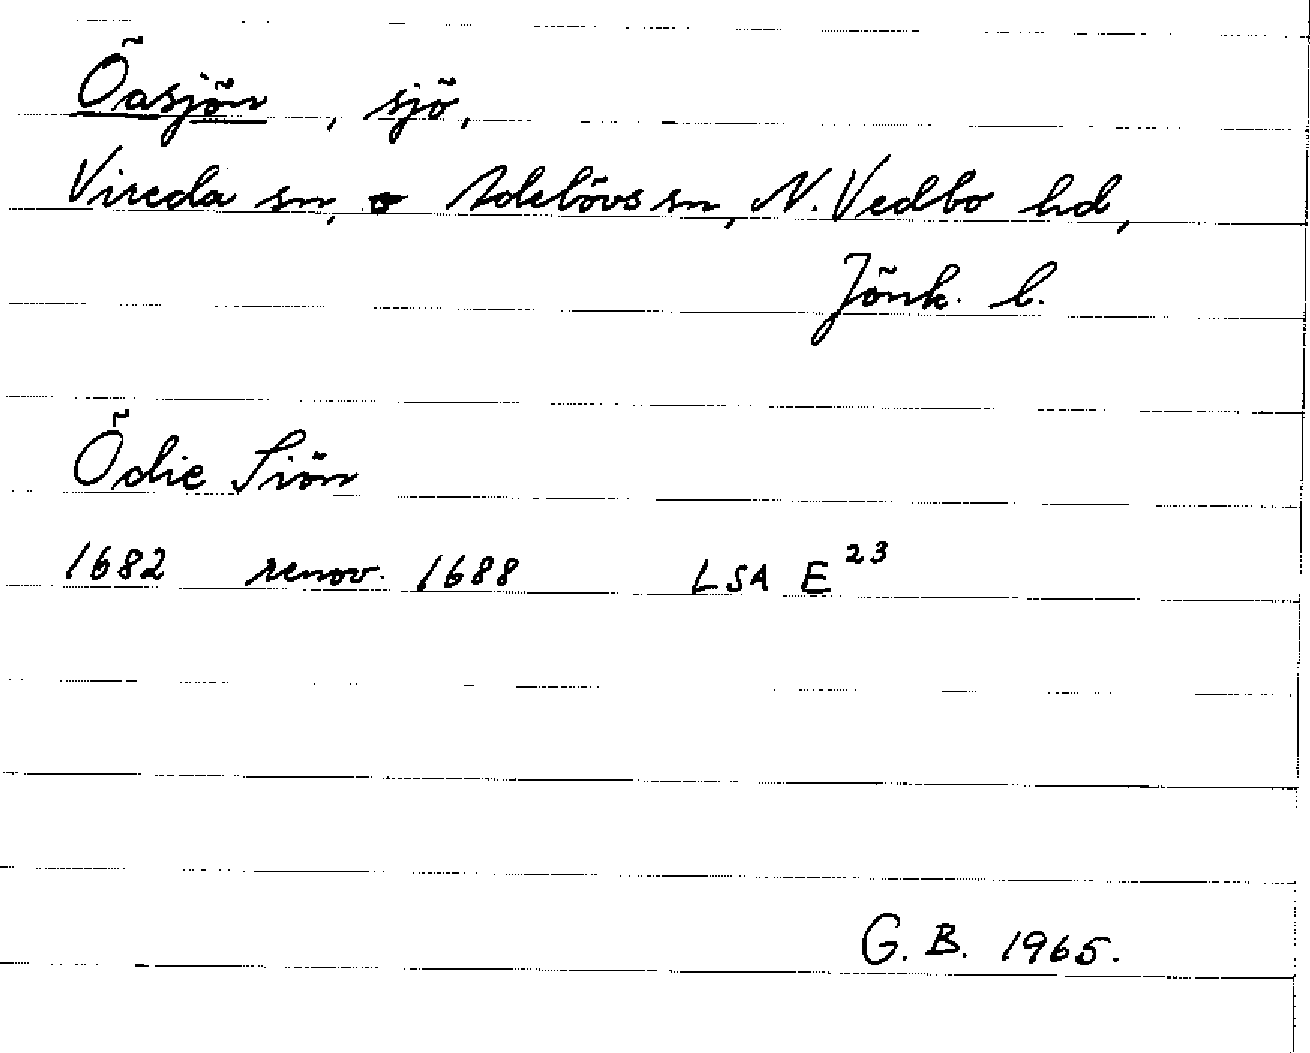 Öasjön, sjö,
Vireda sn, o Adelövs sn, N. Vedbo hd,
Jönk. l.
Ödie Siön
1682 renov. 1688 LSA E 23
G. B. 1965.